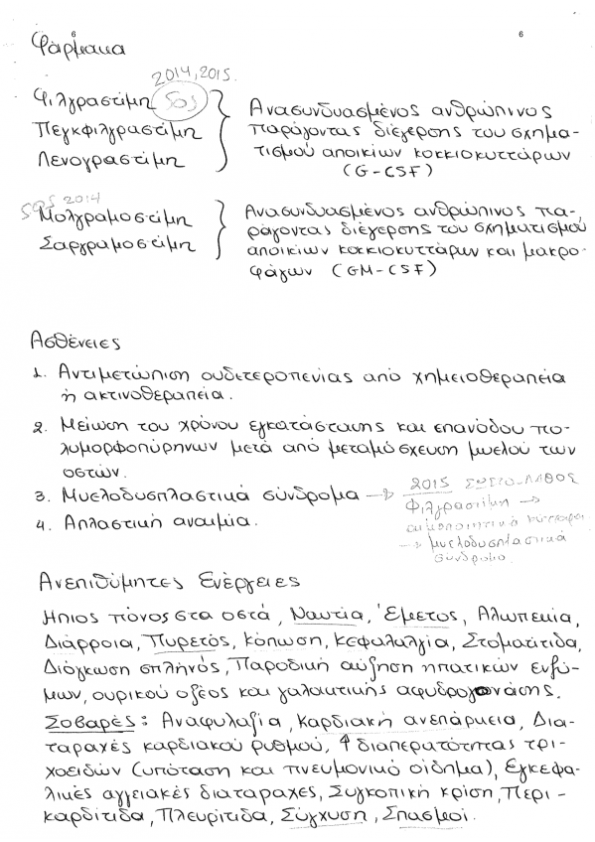 6 6
Φάρμακα
2014, 2015.
Φιλγραστίμη SOS
Πεγκφιλγραστίμη
Λενογραστίμη
Ανασυνδυασμένος ανθρώπινος
παράγοντας διέγερσης του σχημα-
τισμού αποικίων κοκκιοκυττάρων
(G-CSF)
SOS 2014
Μολγραμοστίμη
Σαργραμοστίμη
Ανασυνδυασμένος ανθρώπινος πα-
ράγοντας διέγερσης του σχηματισμού
αποικίων κοκκιοκυττάρων και μακρο-
φάγων (GM-CSF)
Ασθένειες
1. Αντιμετώπιση ουδετεροπενίας από χημειοθεραπεία
ή ακτινοθεραπεία.
2. Μείωση του χρόνου εγκατάστασης και επανόδου πο-
λυμορφοπύρηνων μετά από μεταμόσχευση μυελού των
οστών.
3. Μυελοδυσπλαστικά σύνδρομα →
4. Απλαστική αναιμία.
2015 ΣΩΣΤΟ-ΛΑΘΟΣ
Φιλγραστίμη →
αιμοποιητικά κύτταρα
→ μυελοδυσπλαστικά
σύνδρομα
Ανεπιθύμητες Ενέργειες
Ήπιος πόνος στα οστά, Ναυτία, Έμετος, Αλωπεκία,
Διάρροια, Πυρετός, Κόπωση, Κεφαλαλγία, Στοματίτιδα,
Διόγκωση σπλήνός, Παροδική αύξηση ηπατικών ενζύ-
μων, ουρικού οξέος και γαλακτικής αφυδρογονάσης.
Σοβαρές: Αναφυλαξία, Καρδιακή ανεπάρκεια, Δια-
ταραχές καρδιακού ρυθμού, ↑ διαπερατότητας τρι-
χοειδών (υπόταση και πνευμονικό οίδημα), Εγκεφα-
λικές αγγειακές διαταραχές, Συγκοπτική κρίση, Περι-
καρδίτιδα, Πλευρίτιδα, Σύγχυση, Σπασμοί.